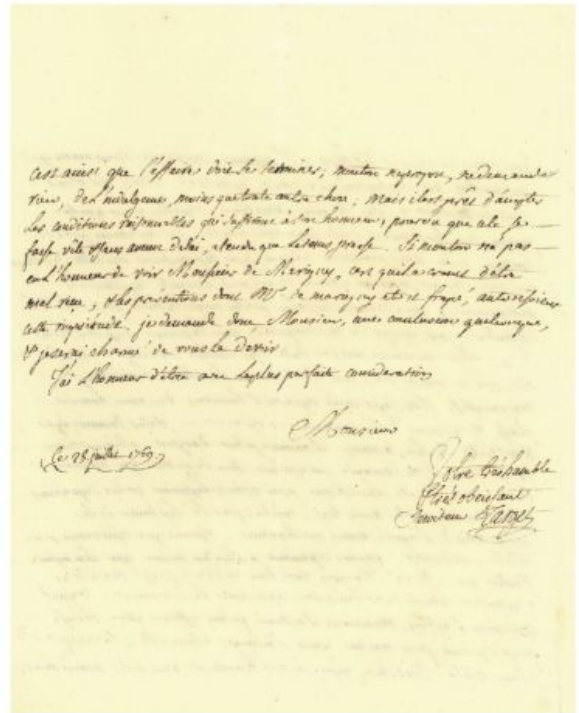 c'est ainsi que l'affaire doit se terminer; mouton n'a pas, ne demande
rien, de l'indulgence moins que toute autre chose; mais il est près d'accepter
les conditions raisonnables qui à son honneur, pourvu que cela se
fasse vite et sans aucun délai, attendu que le tems presse. Si mouton n'a pas
eu l'honneur de voir Monsieur de Marigny, c'est qu'il a craint d'être
mal reçu, et les préventions dont Mr. de marigny étoit frapé, autorisoient
cette . je demande donc Monsieur, une conclusion quelconque,
et je serai charmé de vous la devoir
J'ai L'honneur d'être avec la plus parfaite consideration
Monsieur
Ce 28 juillet 1769
Votre très humble
et très obeissant
Serviteur